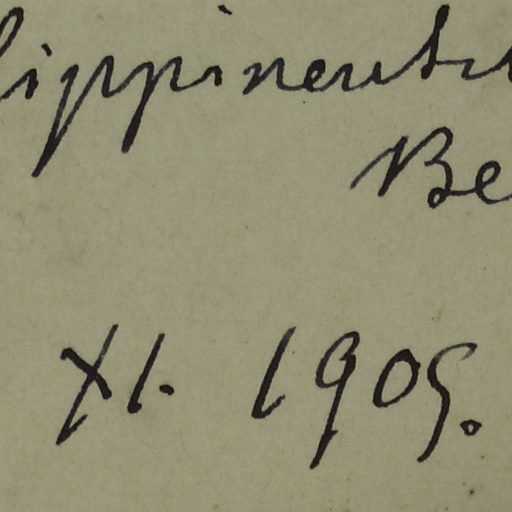 lippinensi
Be
XI. 1909.